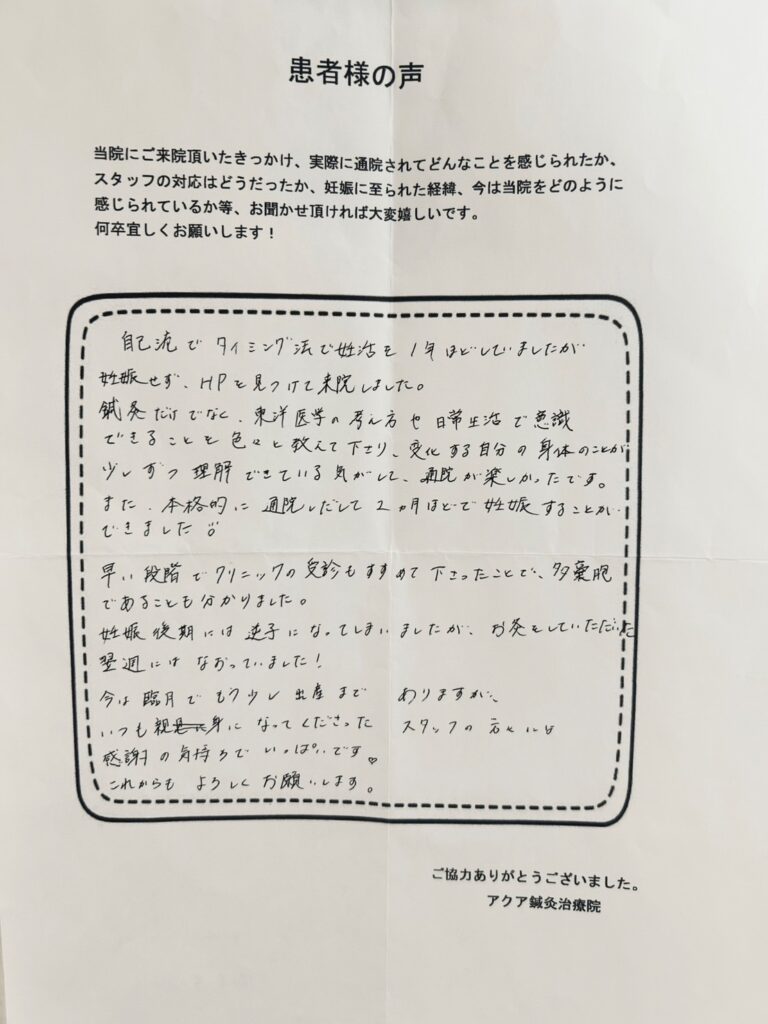 患者様の声
当院にご来院頂いたきっかけ、実際に通院されてどんなことを感じられたか、
スタッフの対応はどうだったか、妊娠に至られた経緯、今は当院をどのように
感じられているか等、お聞かせ頂ければ大変嬉しいです。
何卒宜しくお願いします！
自己流でタイミング法で妊活を1年ほどしていましたが
妊娠せず、HPを見つけて来院しました。
鍼灸だけでなく、東洋医学の考え方や日常生活で意識
できることを色々と教えて下さり、変化する自分の身体のことが
少しずつ理解できている気がして、通院が楽しかったです。
また、本格的に通院しだして2ヵ月ほどで妊娠することが
できました
早い段階でクリニックの受診もすすめて下さったことで、多嚢胞
であることも分かりました。
妊娠後期には逆子になってしまいましたが、お灸をしていただいた
翌週にはなおっていました！
今は臨月でもう少し出産まで ありますが、
いつも親身になってくださった スタッフの方々には
感謝の気持ちでいっぱいです♡
これからもよろしくお願いします。
ご協力ありがとうございました。
アクア鍼灸治療院